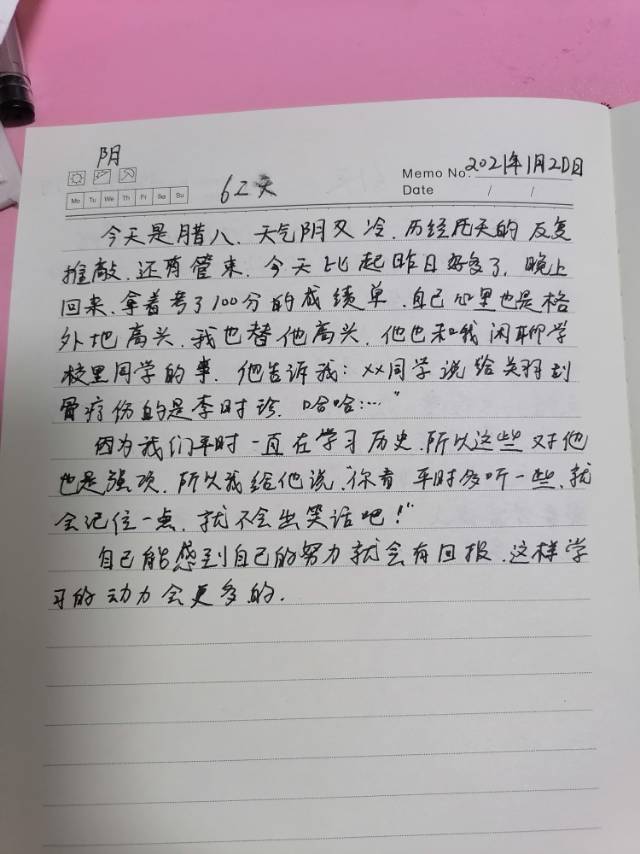 阴
Memo No. 2021年1月20日
Mo Tu We Th Fr Sa Su
62天
Date / /
今天是腊八、天气阴又冷、历经几天的反复
推敲、还有管束、今天比起昨日好多了, 晚上
回来、拿着考了100分的成绩单、自己心里也是格
外地高兴、我也替他高兴、他也和我闲聊学
校里同学的事、他告诉我：xx同学说给关羽刮
骨疗伤的是李时珍、哈哈：…"
因为我们平时一直在学习历史、所以这些对他
也是强项、所以我给他说、"你看平时多听一些、就
会记住一点、就不会出笑话吧！"
自己能感到自己的努力就会有回报、这样学
习的动力会更多的.